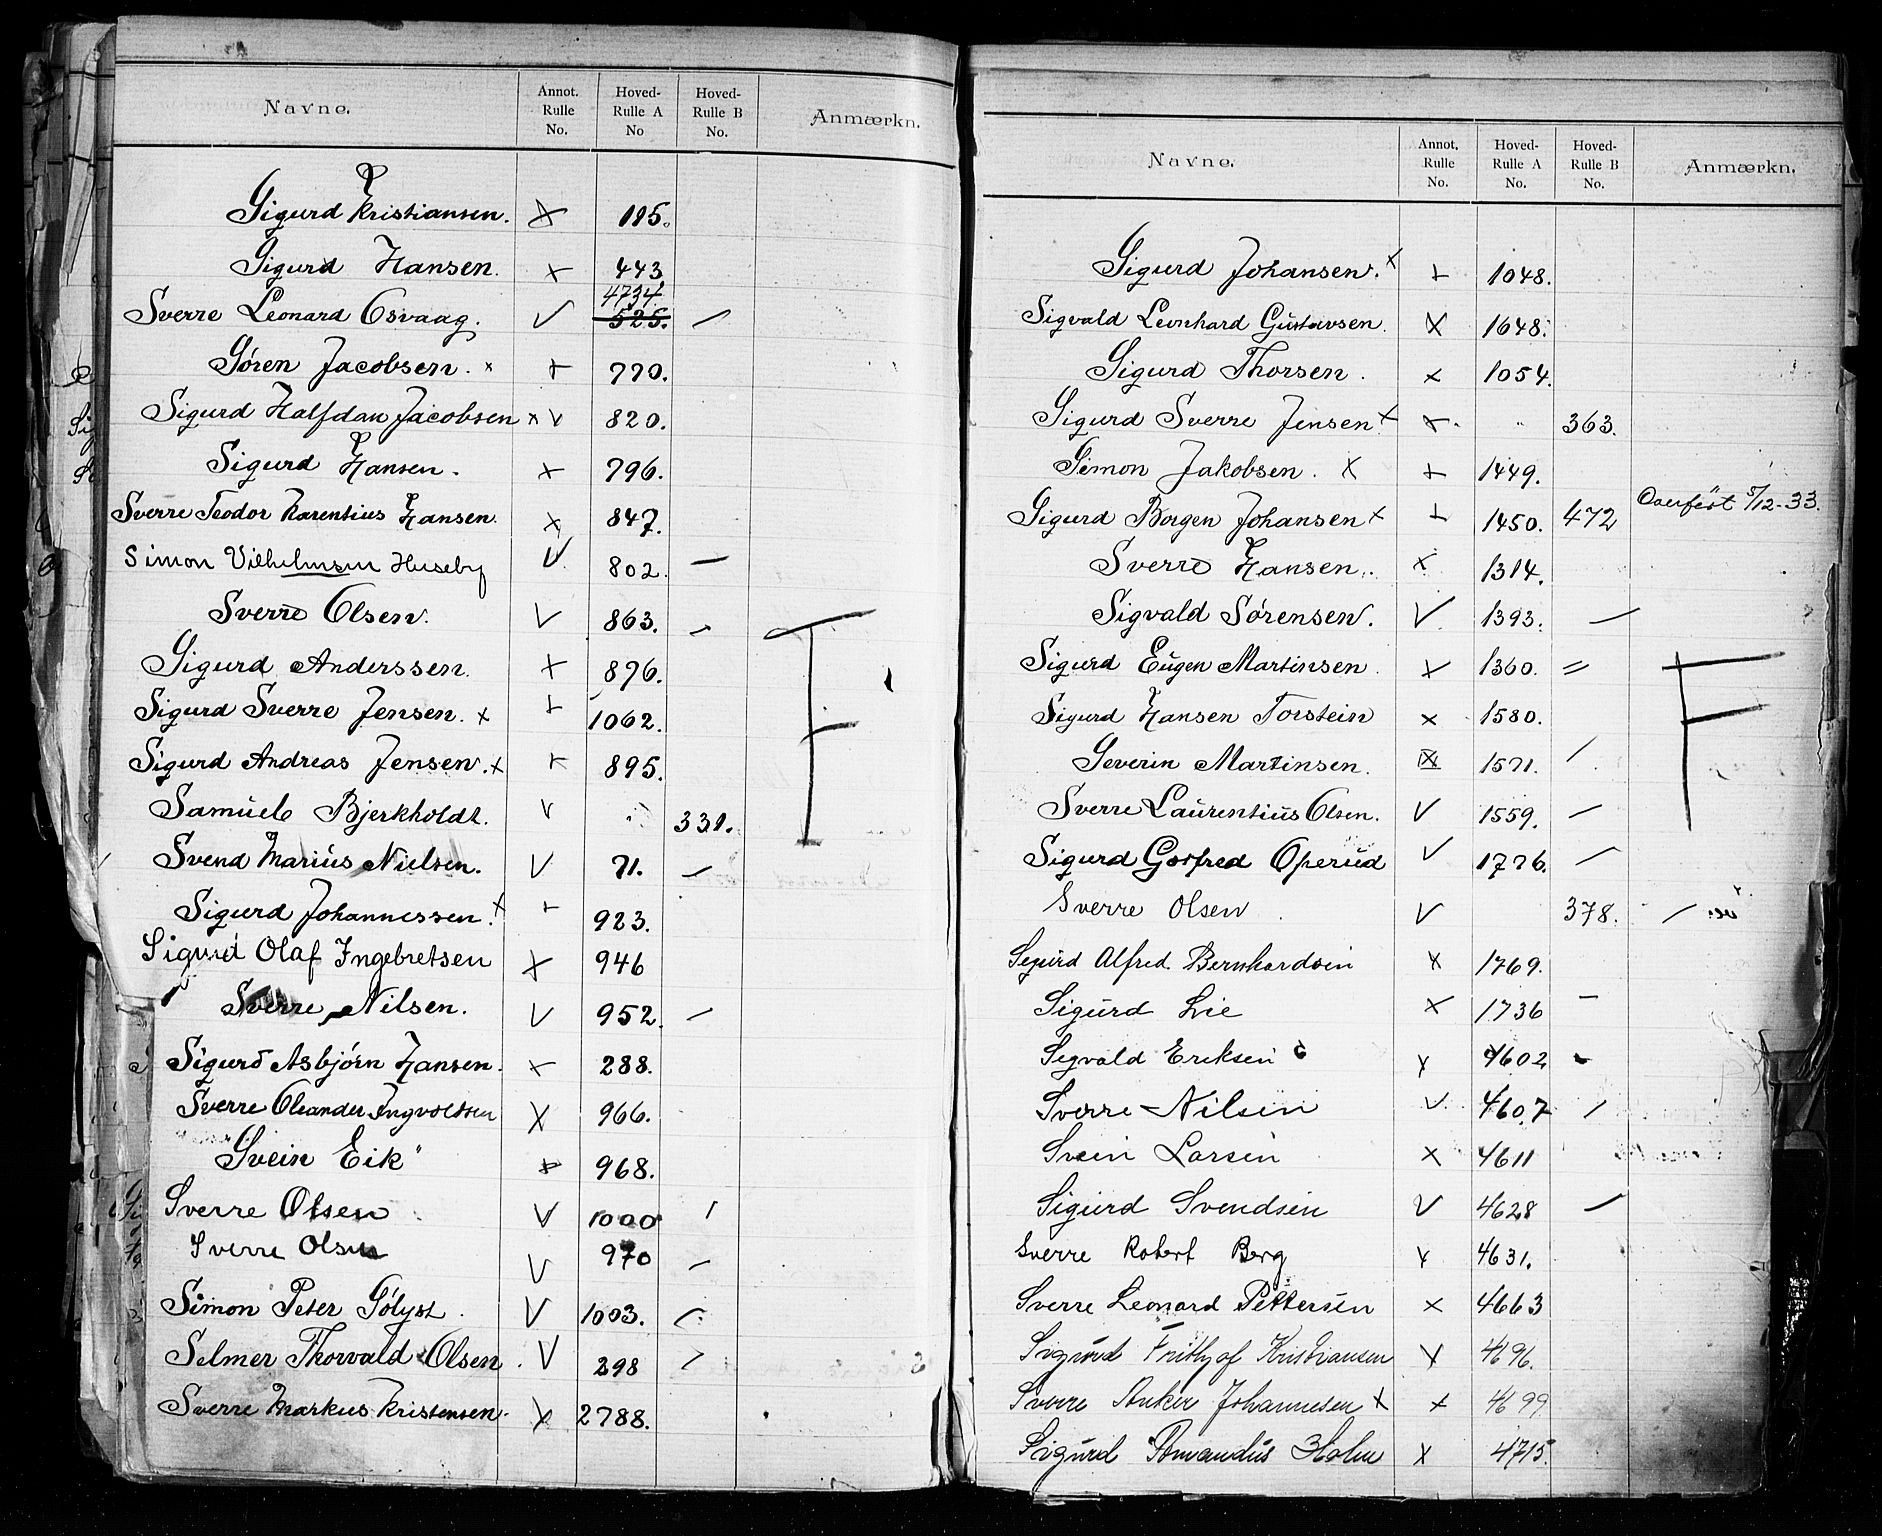 Navne. Annot. Rulle No. Hoved-Rulle A No Hoved-Rulle B No. Anmærkn.
Sigurd Kristiansen. × 185.
Sigurd Hansen. × 443
Sverre Leonard Osvaag. V 4734. 525. /
Søren Jacobsen. × + 770.
Sigurd Halfdan Jacobsen × V 820.
Sigurd Hansen. × 796.
Sverre Teodor Harentius Hansen. × 847.
Simon Vilhelmsen Huseby V 802. —
Sverre Olsen. V 863. —
Sigurd Anderssen. × 876.
Sigurd Sverre Jensen. × + 1062.
Sigurd Andreas Jensen. × + 895.
Samuel Bjerkholdt. V " 331.
Svend Marius Nielsen. V 71. —
Sigurd Johannessen. × + 923.
Sigurd Olaf Ingebretsen × 946
Sverre Nilsen. V 952. —
Sigurd Asbjørn Hansen. × 288.
Sverre Oleander Ingvoldsen × 966.
Svein Eik × 968.
Sverre Olsen V 1000 /
Sverre Olsen V 970 —
Simon Peter Gölyst. V 1003. /
Selmer Thorvald Olsen. V 298 /
Sverre Markus Kristensen. × 2788.
F
Navne. Annot. Rulle No. Hoved-Rulle A No. Hoved-Rulle B No. Anmærkn.
Sigurd Johansen. × + 1048.
Sigvald Leonhard Gustavsen. × 1648.
Sigurd Thorsen. × 1054.
Sigurd Sverre Jensen × ×. " 363.
Simon Jakobsen. × + 1449.
Sigurd Borgen Johansen × + 1450. 472 Overført 5/12-33.
Sverre Hansen. × 1314.
Sigvald Sørensen. V 1393. —
Sigurd Eugen Martinsen. × 1360. =
Sigurd Hansen Torstein × 1580.
Severin Martinsen. × 1571. /
Sverre Laurentius Olsen. V 1559. —
Sigurd Gotfred Operud V 1776. —
Sverre Olsen. V 378. —
Sigurd Alfred Bernhardsen × 1769.
Sigurd Lie × 1736 —
Sigvald Eriksen × 4602 -
Sverre Nilsen V 4607 /
Svein Larsen × 4611
Sigurd Svendsen V 4628 —
Sverre Robert Berg × 4631.
Sverre Leonard Pettersen × 4663
Sigurd Frithjof Kristiansen × 4696.
Sverre Anker Johannesen × × 4699
Sigurd Amandus Holm × 4715.
F